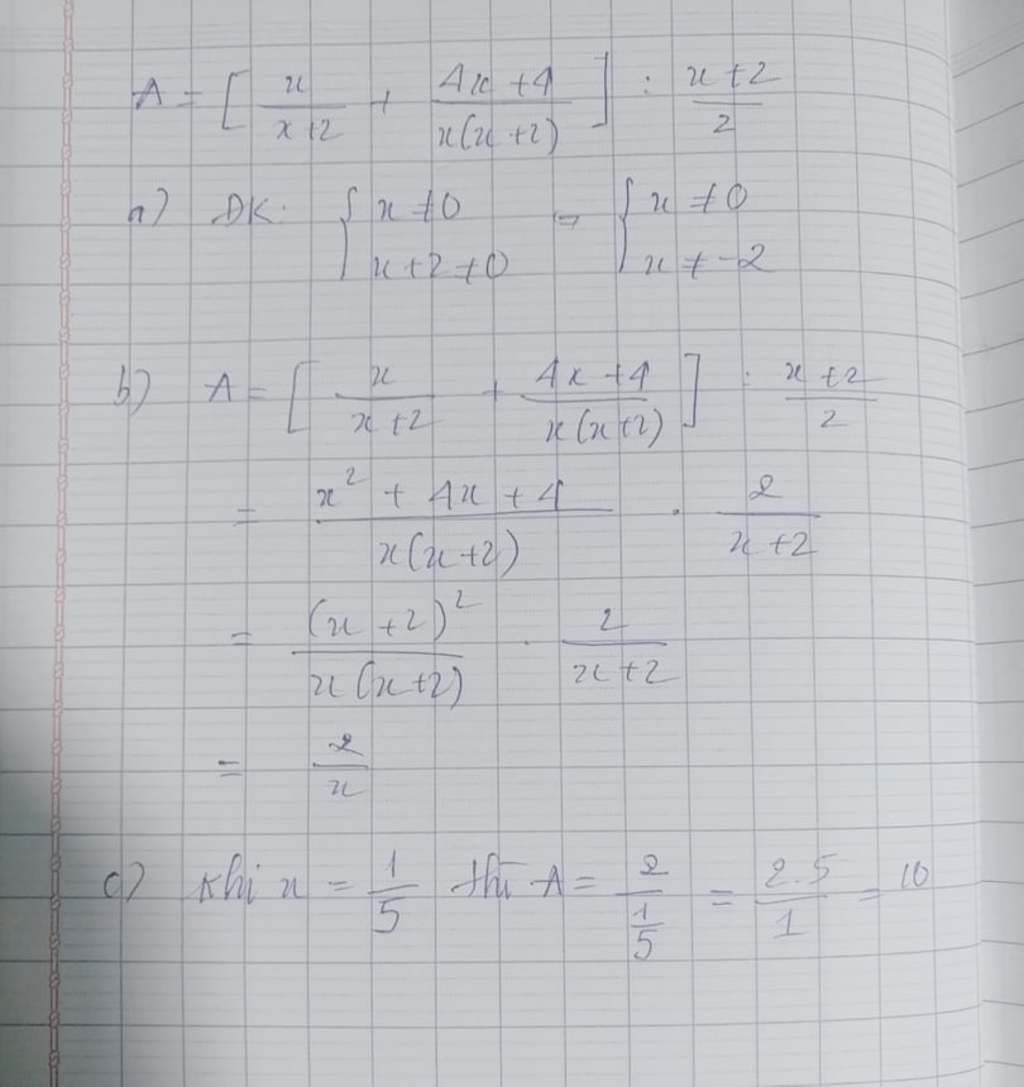 A = [ x/(x+2) + (4x+4)/(x(x+2)) ] : (x+2)/2
a) ĐK: { x ≠ 0 ; x+2 ≠ 0 => { x ≠ 0 ; x ≠ -2
b) A = [ x/(x+2) + (4x+4)/(x(x+2)) ] : (x+2)/2
= (x² + 4x + 4)/(x(x+2)) . 2/(x+2)
= (x+2)²/(x(x+2)) . 2/(x+2)
= 2/x
c) Khi x = 1/5 thì A = 2/(1/5) = (2.5)/1 = 10